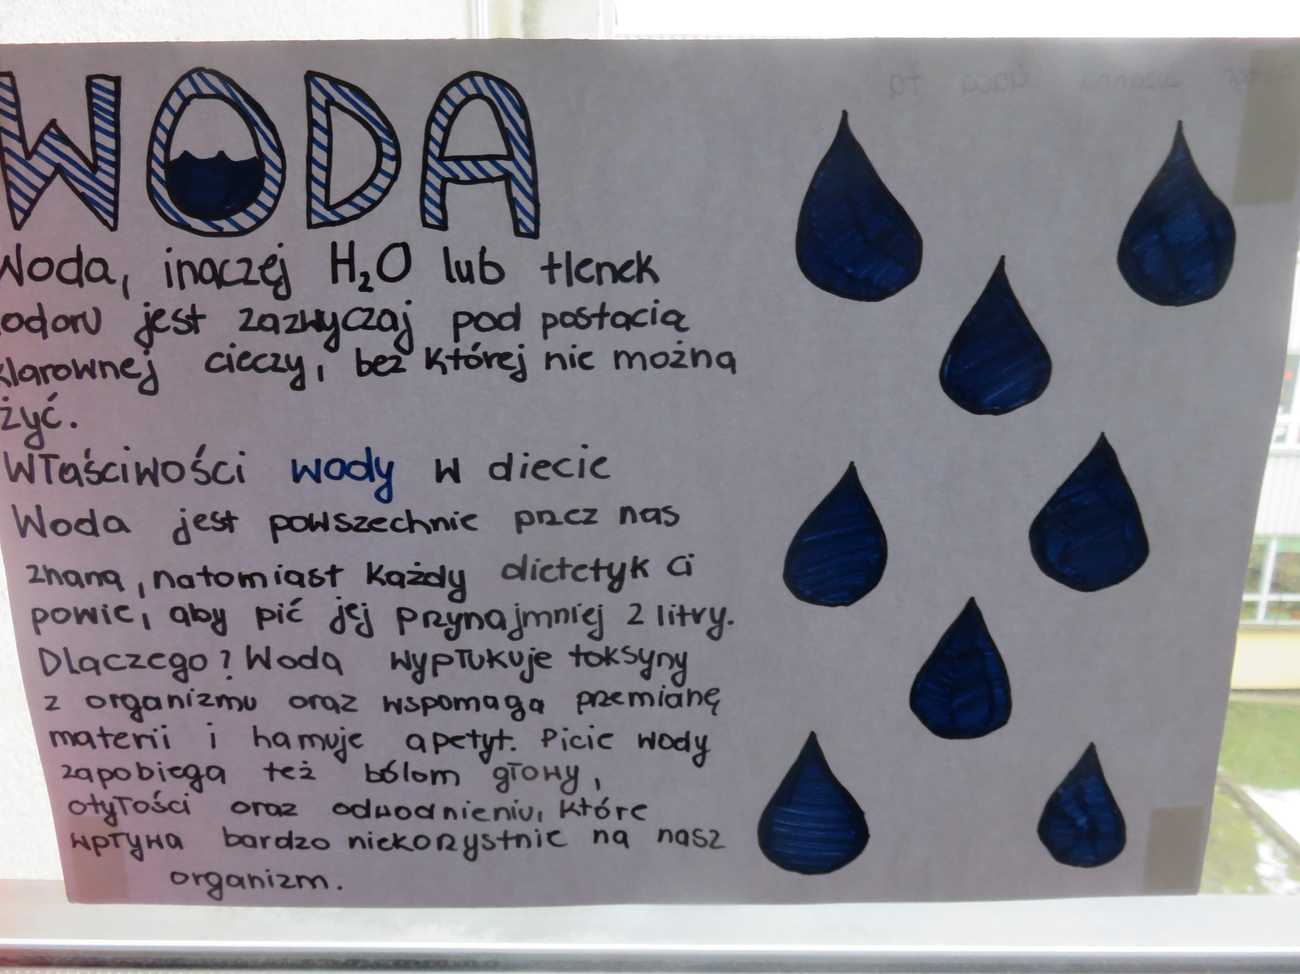 WODA
Woda, inaczej H₂O lub tlenek
wodoru jest zazwyczaj pod postacią
klarownej cieczy, bez której nie można
żyć.
Właściwości wody w diecie
Woda jest powszechnie przez nas
znana, natomiast każdy dietetyk Ci
powie, aby pić jej przynajmniej 2 litry.
Dlaczego? Woda wypłukuje toksyny
z organizmu oraz wspomaga przemianę
materii i hamuje apetyt. Picie wody
zapobiega też bólom głowy,
otyłości oraz odwodnieniu, które
wpływa bardzo niekorzystnie na nasz
organizm.